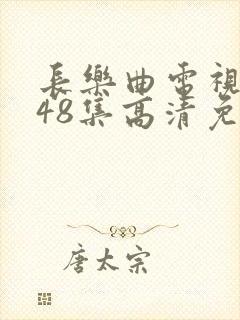 長樂曲電視
48集高清免
唐太宗